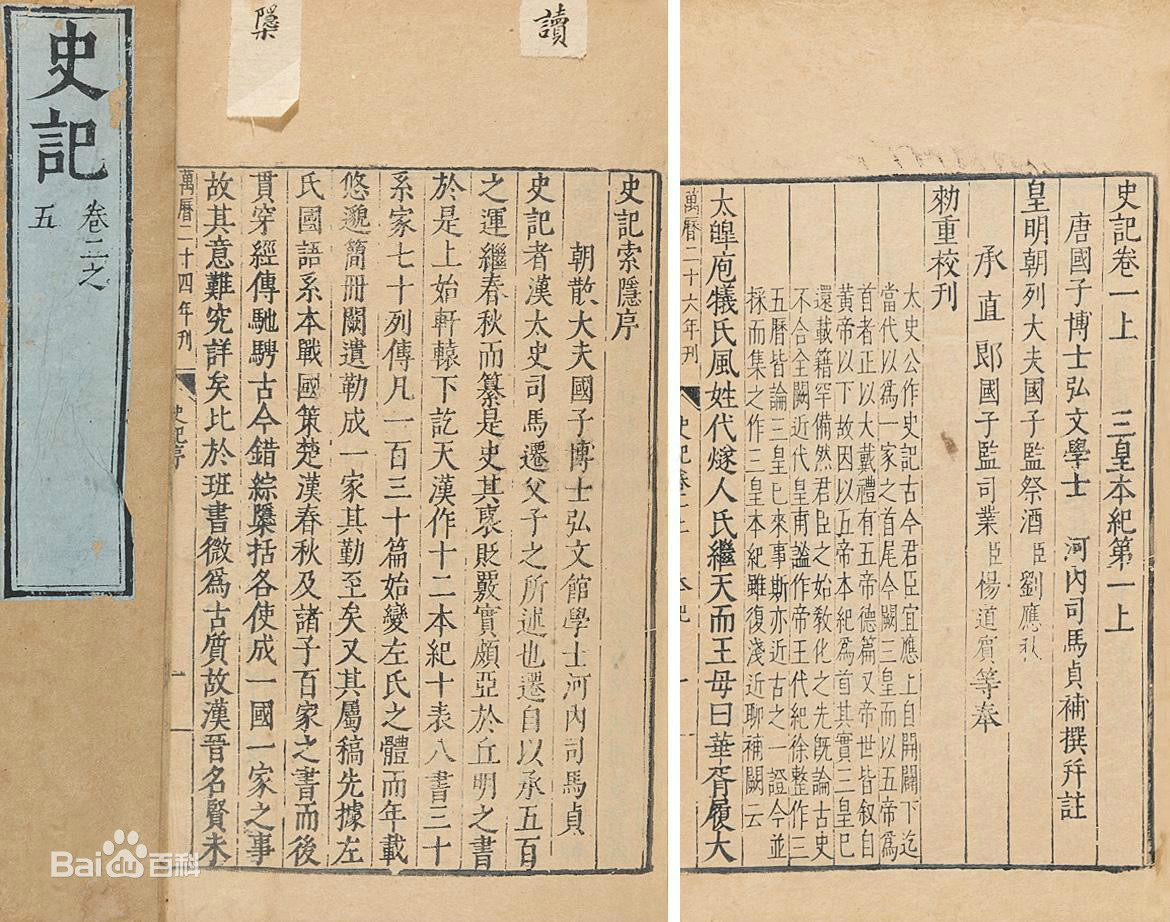 史記
卷二之
五
讀
檃
史記索隱序
朝散大夫國子博士弘文館學士河內司馬貞
史記者漢太史司馬遷父子之所述也遷自以承五百
之運繼春秋而纂是史其襃貶覈實頗亞於丘明之書
於是上始軒轅下訖天漢作十二本紀十表八書三十
系家七十列傳凡一百三十篇始變左氏之體而年載
悠邈簡冊闕遺勒成一家其勤至矣又其屬稿先據左
氏國語系本戰國策楚漢春秋及諸子百家之書而後
貫穿經傳馳騁古今錯綜檃括各使成一國一家之事
故其意難究詳矣比於班書微為古質故漢晉名賢未
萬曆二十四年刊
史記序
一
史記卷一上 三皇本紀第一上
唐國子博士弘文學士 河內司馬貞補撰幷註
皇明朝列大夫國子監祭酒臣劉應秋
承直郎國子監司業臣楊道賓等奉
勑重校刊
太史公作史記古今君臣宜應上自開闢下迄
當代以為一家之首尾今闕三皇而以五帝為
首者正以大戴禮有五帝德篇又帝世皆叙自
黃帝以下故因以五帝本紀為首其實三皇已
還載籍罕備然君臣之始教化之先旣論古史
不合全闕近代皇甫謐作帝王代紀徐整作三
五曆皆論三皇已來事斯亦近古之一證今並
採而集之作三皇本紀雖復淺近聊補闕云
太皞庖犧氏風姓代燧人氏繼天而王母曰華胥履大
萬曆二十六年刊
史記卷一上
本紀
一
Bai百科